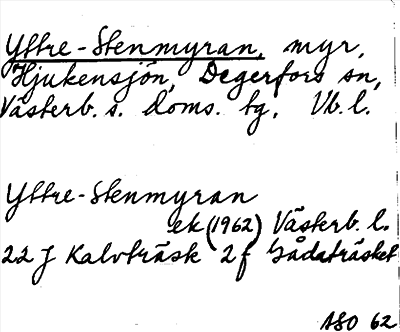 Yttre-Stenmyran, myr,
Hjukensjön, Degerfors sn,
Västerb. s. doms. tg, Vb. l.
Yttre-Stenmyran
ek (1962) Västerb. l.
22 J Kalvträsk 2 f Gådaträsket
ASO 62